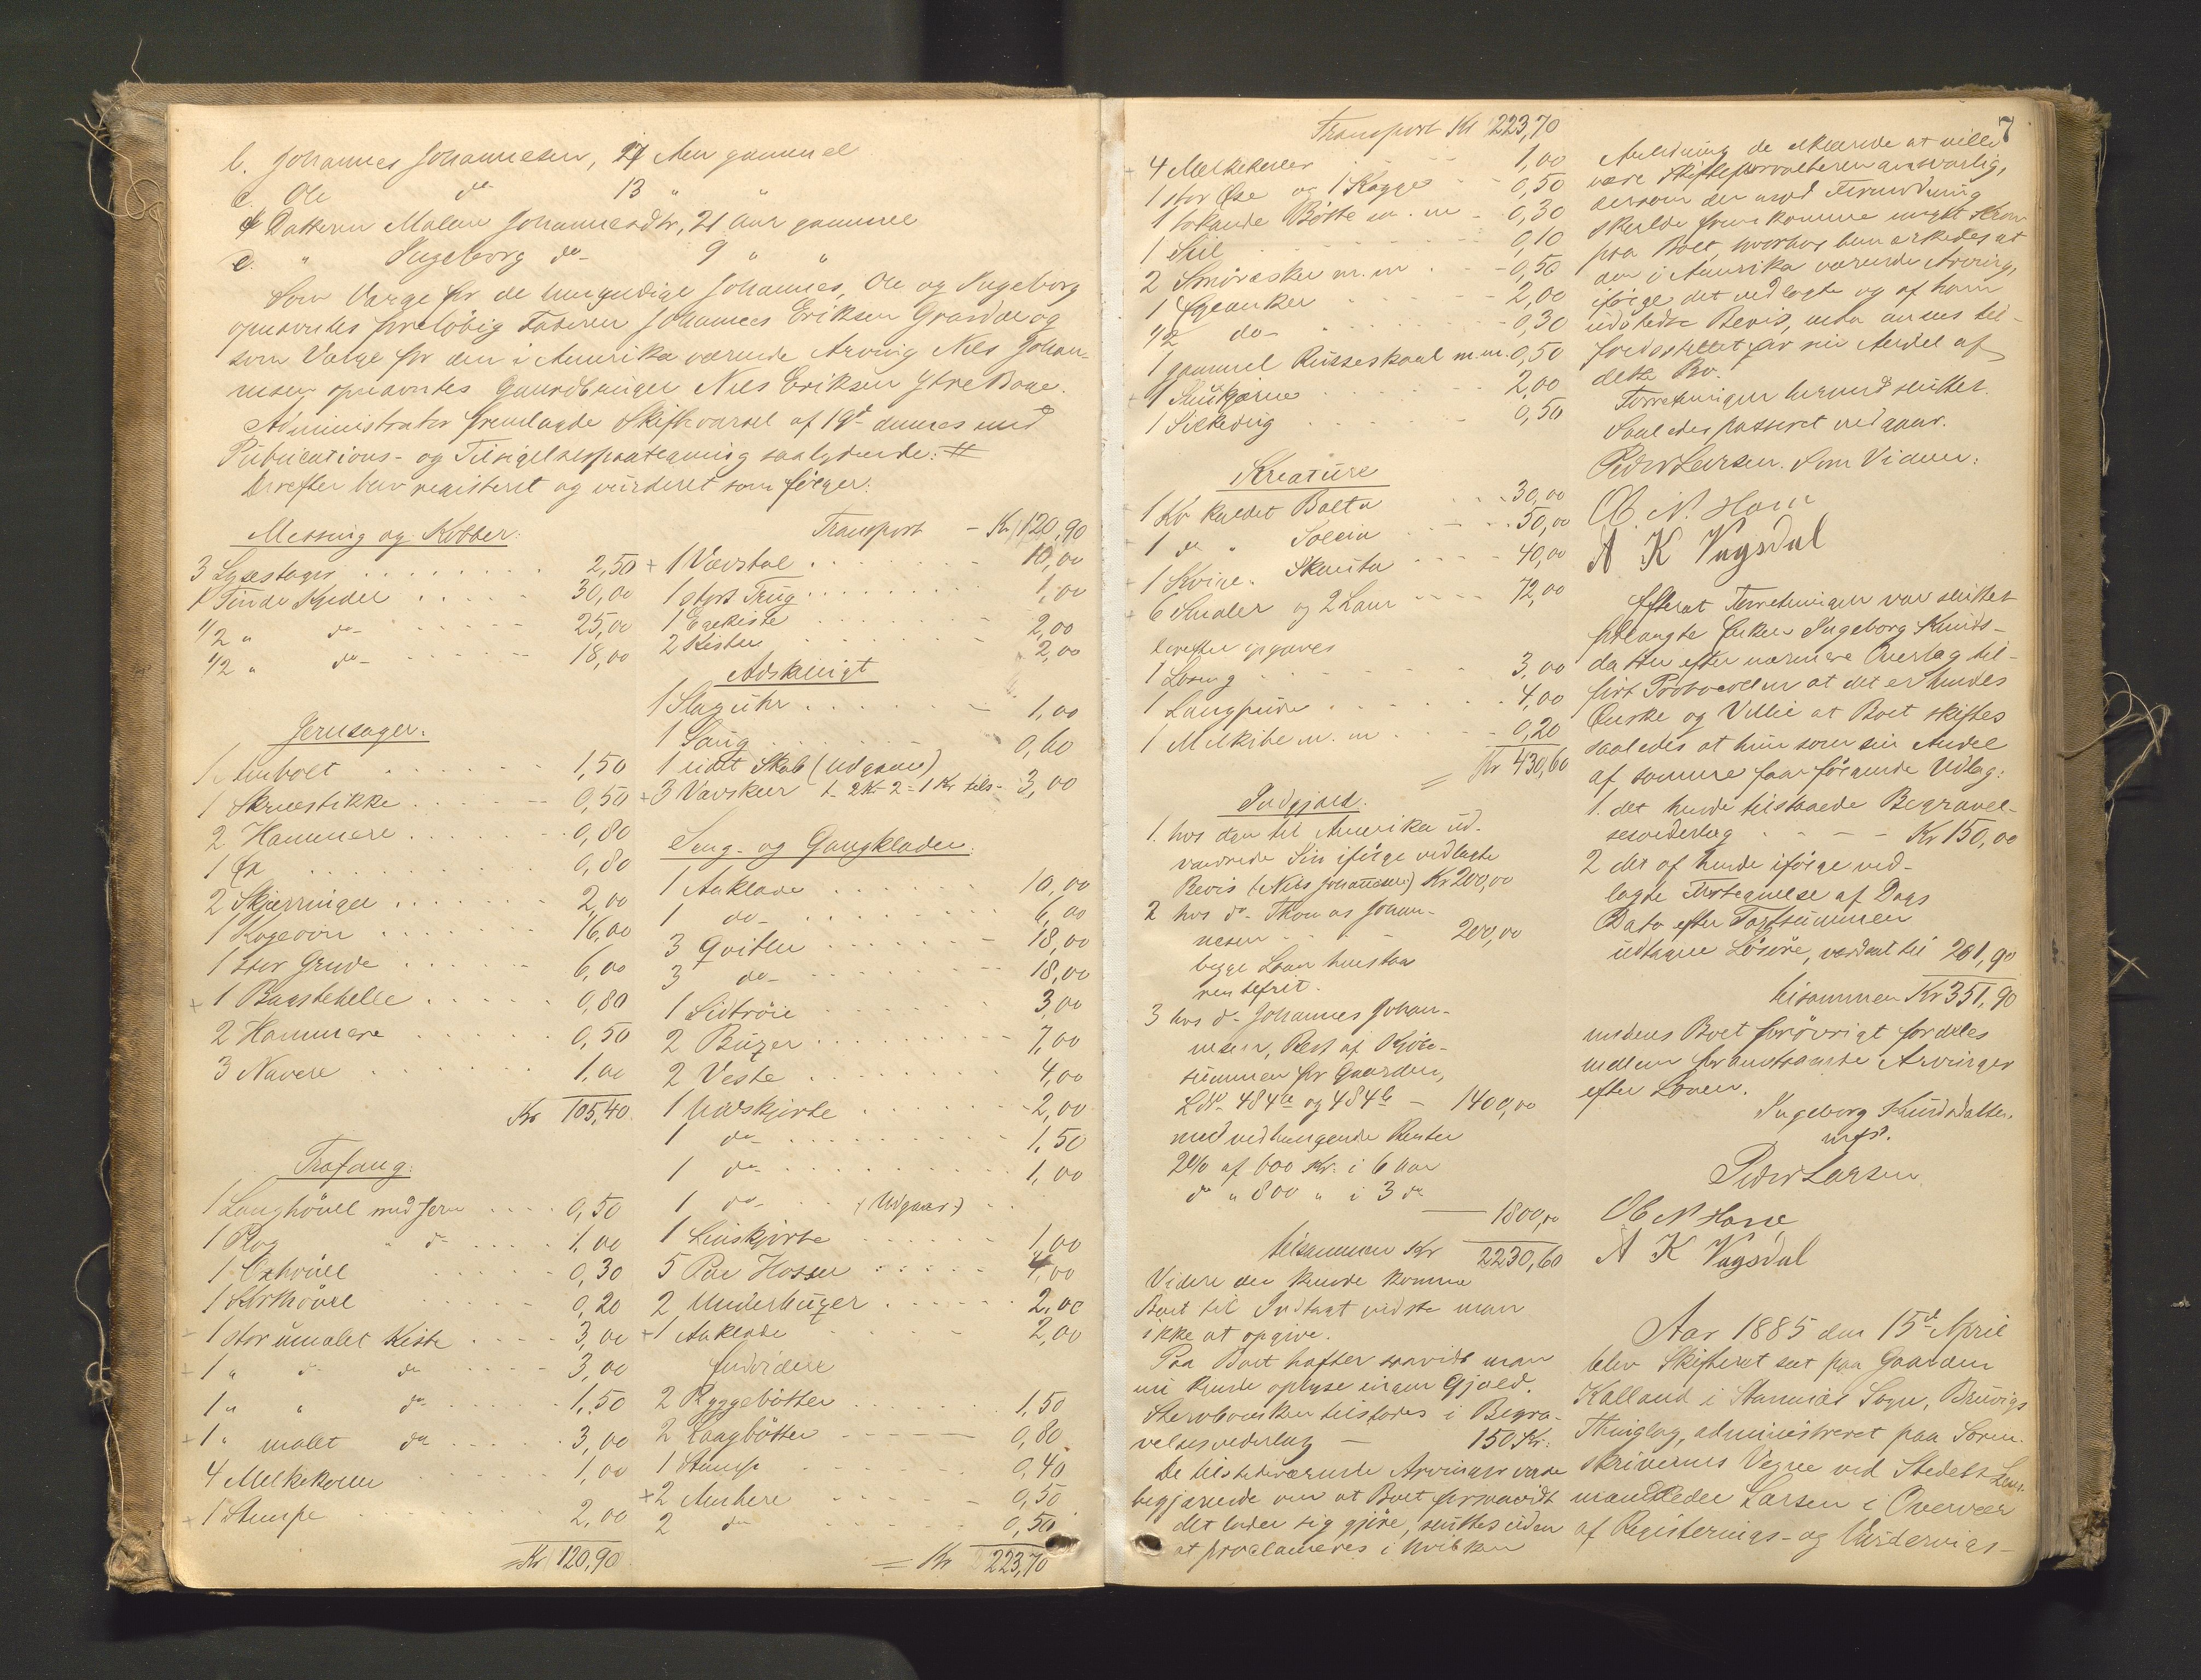 b. Johannes Johannesen, 17 Aar gammel
c. Ole do 13 " "
d Datteren Malene Johannesdtr, 21 Aar gammel
e. " Ingeborg do - 9 " "
Som Værge for de umyndige Johannes, Ole og Ingeborg
opnævntes foreløbig Faderen Johannes Eriksen Grasdal og
som Værge for den i Amerika værende Arving Nils Johan-
nesen opnævntes Gaardbruger Nils Eriksen Ytre Boge.
Administrator fremlagde Skiftevarsel af 19d dennes med
Publications- og Tilsigelsespaategning saalydende: #
Derefter blev registeret og vurderet som følger:
Messing og Kobber:
3 Lysestager 2,50
1 Tønde Kjedel 30,00
1/2 " do - 25,00
1/2 " do - 18,00
Jernsager.
1 Ambolt 1,50
1 Skruestikke 0,50
2 Hammere 0,80
1 Øx 0,80
2 Skjæringer 2,00
1 Kogeovn 16,00
1 stor Gryde 6,00
+ 1 Bagstehelle 0,80
2 Hammere 0,50
3 Navere 1,00
Kr 105,40
Træfang:
1 Langhövel med Jern 0,50
1 Plog " d- 1,00
1 Oxhövel 0,30
1 0,20
- 1 stor umalet Kiste 3,00
+ 1 " d- do 3,00
1 " " do - 1,50
+ 1 " malet do 3,00
4 Melkekoller 1,00
+ 1 Stampe 2,00
= Kr 120,90
Transport - Kr 120,90
+ 1 Vævstol 10,00
1 stort Trug 1,00
1 Egekiste 2,00
2 Kister 2,00
Adskilligt
1 Slaguhr 1,00
1 Saug 0,60
1 lidet Skab (udgaar)
+ 3 Vævskeer 1 - 2 Kr 2 - 1 Kr tils - 3,00
Seng- og Gangklæder.
1 Aaklæde 10,00
1 do - 6,00
3 Qvitler 18,00
3 do - 18,00
1 Sidtröie 3,00
2 Buxer 7,00
2 Veste 4,00
1 Uldskjorte 2,00
1 do - 1,50
1 do - 1,00
1 do - (Udgaar)
1 Linskjorte 1,00
5 Par Hosser 4,00
2 Underbuxer 2,00
+ 1 Aaklæde 2,00
Endvidere
2 Ryggebøtter 1,50
2 Laagbøtter 0,80
1 Stamp 0,40
+ 2 Ambere 0,50
2 do 0,50
= Kr 223,70
7
Transport Kr 223,70
+ 4 Melkekoller 1,00
1 stor Øse og 1 Kagge 0,50
1 Bøtte m. m - 0,30
1 Sil 0,10
2 Smöræsker m. m 0,50
1 Ølanker 2,00
1/2 do - 0,30
1 gammel m. m. 0,50
+ 1 2,00
1 0,50
Kreature
1 Ko kaldet Bolta 30,00
1 do " 50,00
1 Kvige " 40,00
+ 6 Smaler og 2 Lam 72,00
derefter opgaves
1 Seng 3,00
1 Langpude 4,00
1 m. m 0,20
= Kr 430,60
Indgjæld.
1. hos den til Amerika ud-
vandrede Søn ifølge vedlagte
Bevis (Nils Johannesen) Kr 200,00
2 hos d- Thomas Johan-
nesen 200,00
begge Laan henstaar
rentefrit.
3 hos d- Johannes Johan-
nesen, Rest af Kjöbe-
summen for Gaarden,
LNo 484a og 484b - 1400,00
med vedhængende Renter
2% af 600 Kr. i 6 Aar
do " 800 " i 3 do
1800,00
tilsammen Kr 2230,60
Videre der kunde komme
Boet til Indtægt vidste man
ikke at opgive.
Paa Boet hæfter saavidt man
nu kunde oplyse ingen Gjæld.
Stervboenken tilstodes i Begra-
velsesvederlag - 150 Kr:
De tilstedeværende Arvinger vare
begjærende om at Boet forsaavidt
det lader sig gjöre, sluttes uden
at proclameres i hvilken
Anledning de erklærede at ville
være Skifteforvalteren ansvarlig,
dersom der mod Formodning
skulde fremkomme noget Krav
paa Boet, hvorhos bemærkedes at
den i Amerika værende Arving,
ifølge det vedlagte og af ham
udstedte Bevis, maa ansees til-
fredsstillet for sin Andel af
dette Bo.
Forretningen hermed sluttet.
Saaledes passeret vedgaar.
Peder Larsen. Som Vidner:
A K Vagsdal
Efterat Forretningen var sluttet
forlangte Enken Ingeborg Knuds-
datter efter nærmere Overlæg til-
fört Protocollen at det er hendes
Önske og Villie at Boet skiftes
saaledes at hun som sin Andel
af samme faar følgende Udlæg:
1. det hende tilstaaede Begravel-
sesvederlag - - - Kr 150,00
2 det af hende ifølge ved-
lagte Fortegnelse af Dags
Dato efter Taxtsummen
udtagne Løsöre, værdsat til 201,90
tilsammen Kr 351,90
medens Boet forövrigt fordeles
mellem foranstaaende Arvinger
efter Loven.
Ingeborg Knudsdatter.
m f P.
Peder Larsen
A K Vagsdal
Aar 1885 den 15de April
blev Skifteret sat paa Gaarden
Kalland i Stamnæs Sogn, Bruvigs
Thinglag, administreret paa Soren-
skriverens Vegne ved Stedets Lens-
mand Peder Larsen i Overvær
af Registrerings- og Vurderings-